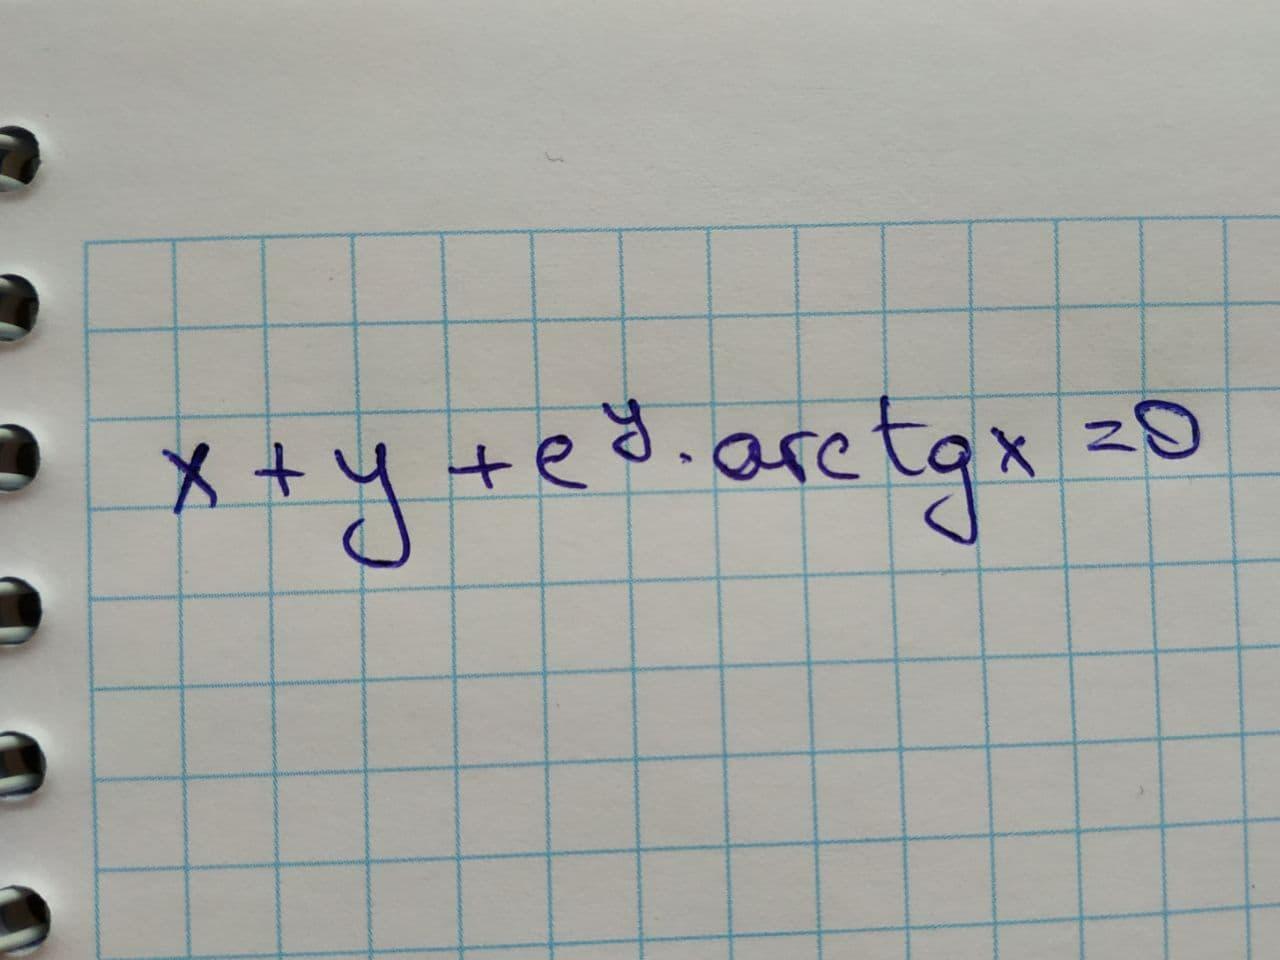 x + y + e^y · arctg x = 0